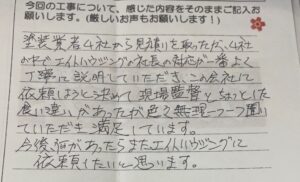 今回の工事について、感じた内容をそのままご記入お
願いします。(厳しいお声もお願いします!)
塗装業者4社から見積りを取ったが、4社
の中でエイトハウジングの社長の対応が一番よく
丁寧に説明していただき、この会社に
依頼しようと決めて現場監督とちょっとした
食い違いがあったが色々無理一つ一つ聞い
ていただき満足しています。
今後何かあったらまたエイトハウジングに
依頼したいと思います。